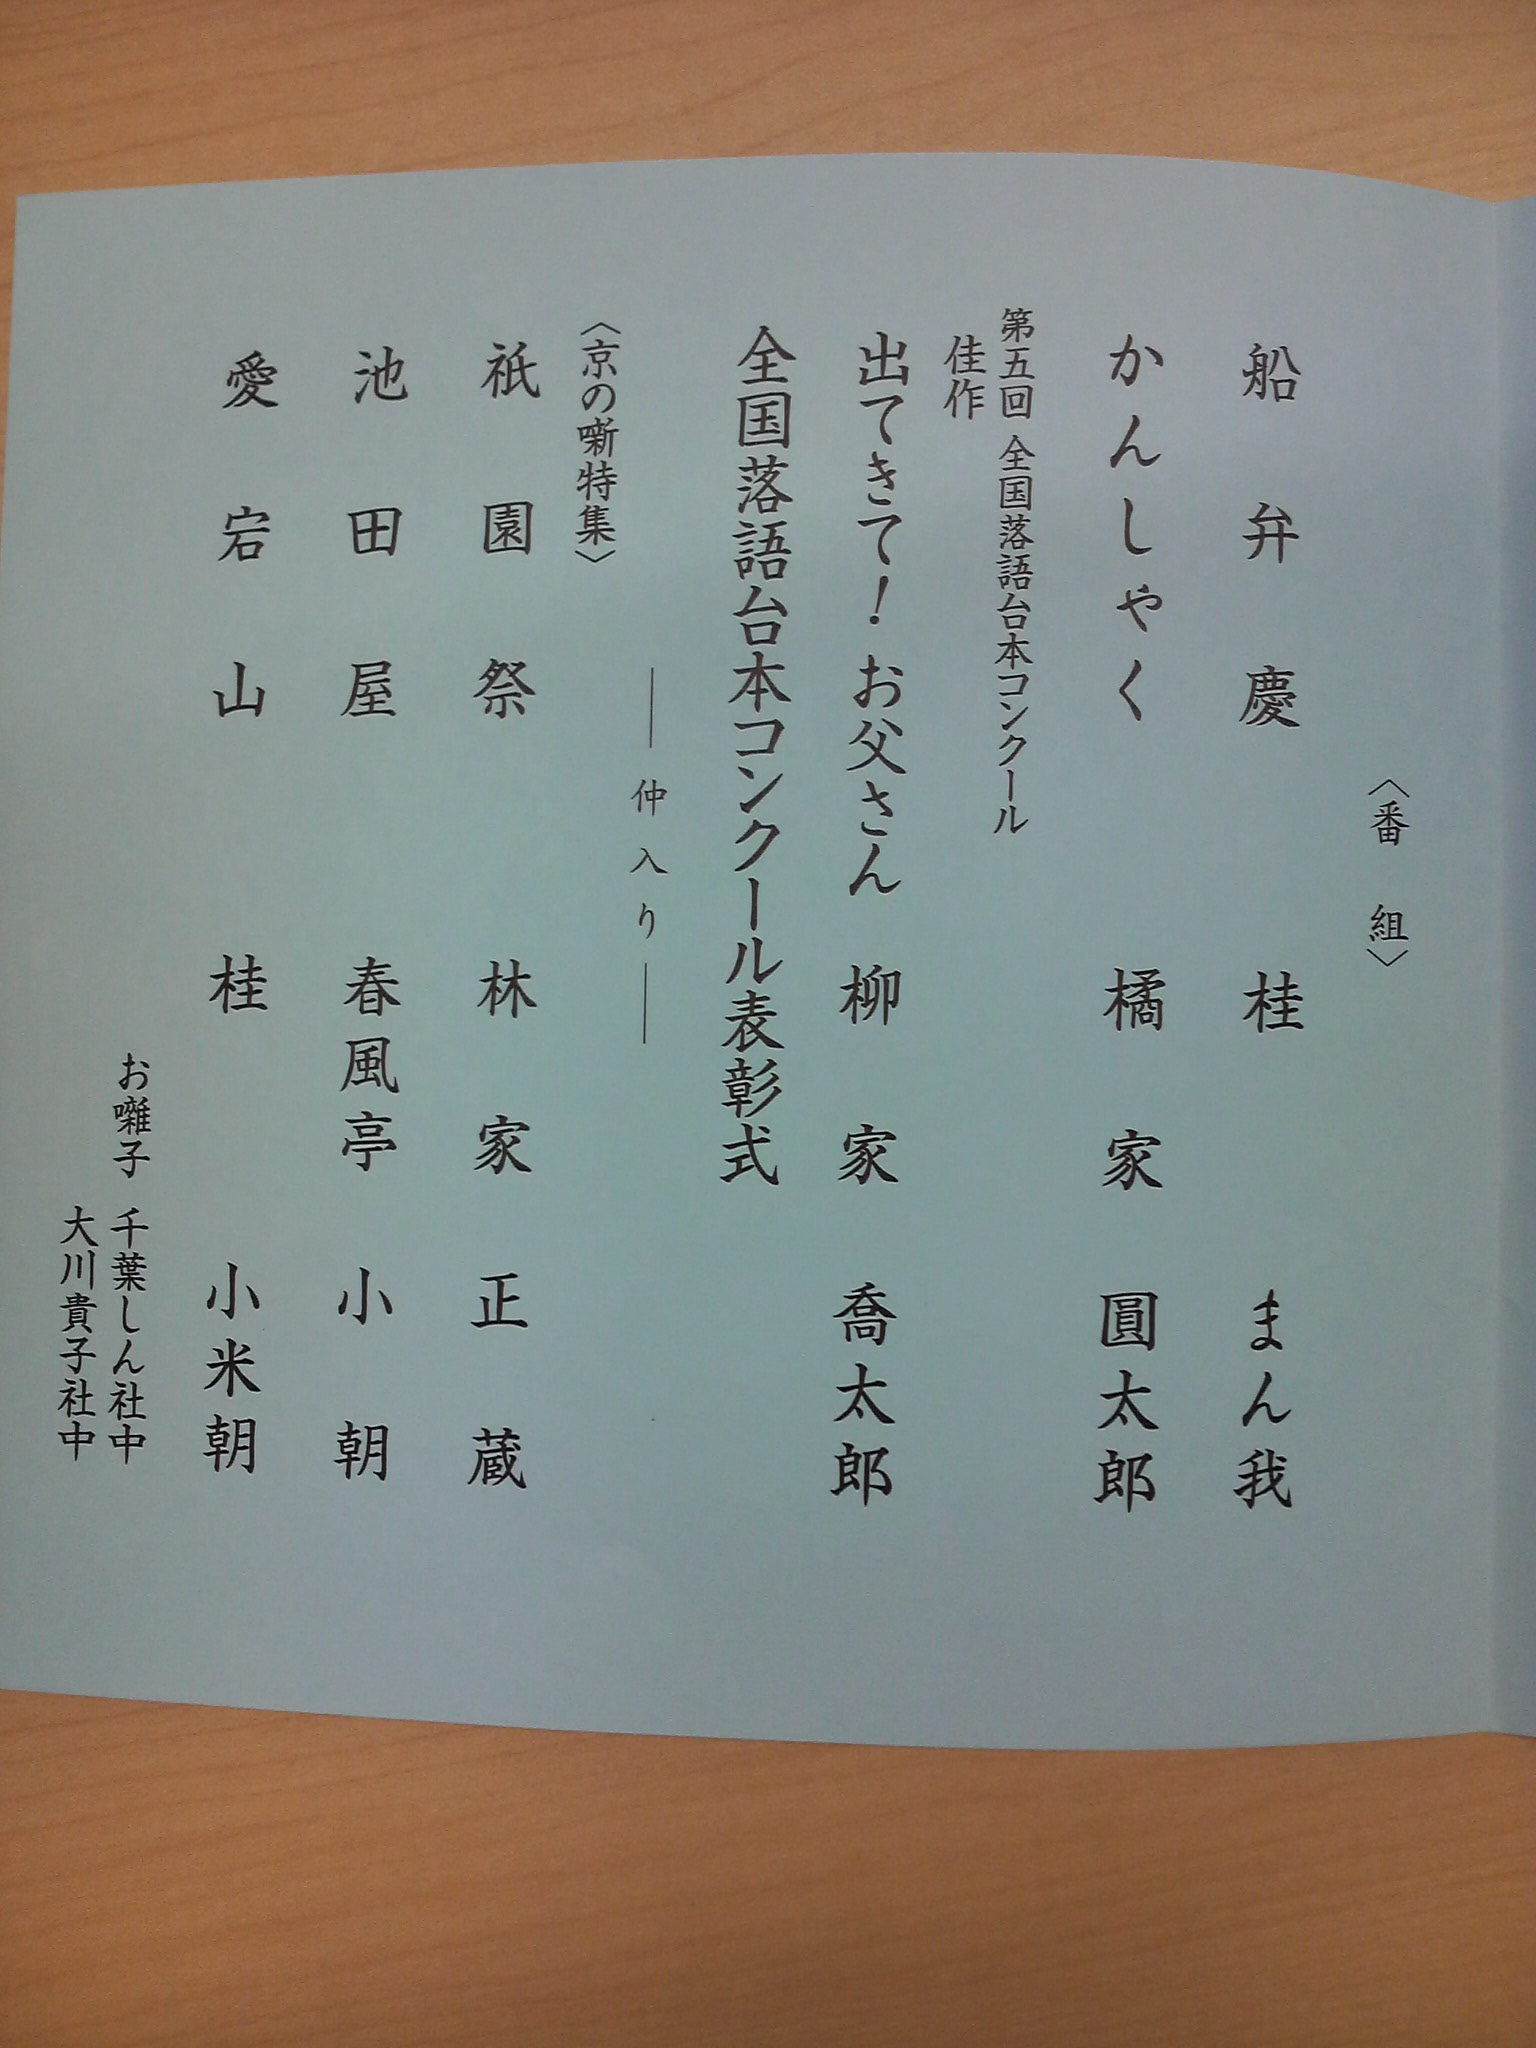 〈番 組〉
船弁慶 桂 まん我
かんしゃく 橘家 圓太郎
第五回 全国落語台本コンクール
佳作
出てきて!お父さん 柳家 喬太郎
全国落語台本コンクール表彰式
― 仲入り ―
〈京の噺特集〉
祇園祭 林家 正蔵
池田屋 春風亭 小朝
愛宕山 桂 小米朝
お囃子 千葉しん社中
大川貴子社中